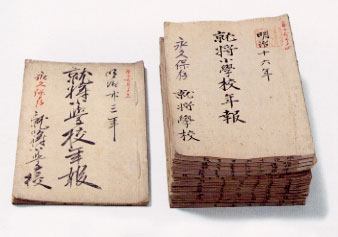 明治十六年
就將小學校年報
永久保存 就將學校
明治廿三年
就將小學校年報
永久保存
就將小學校